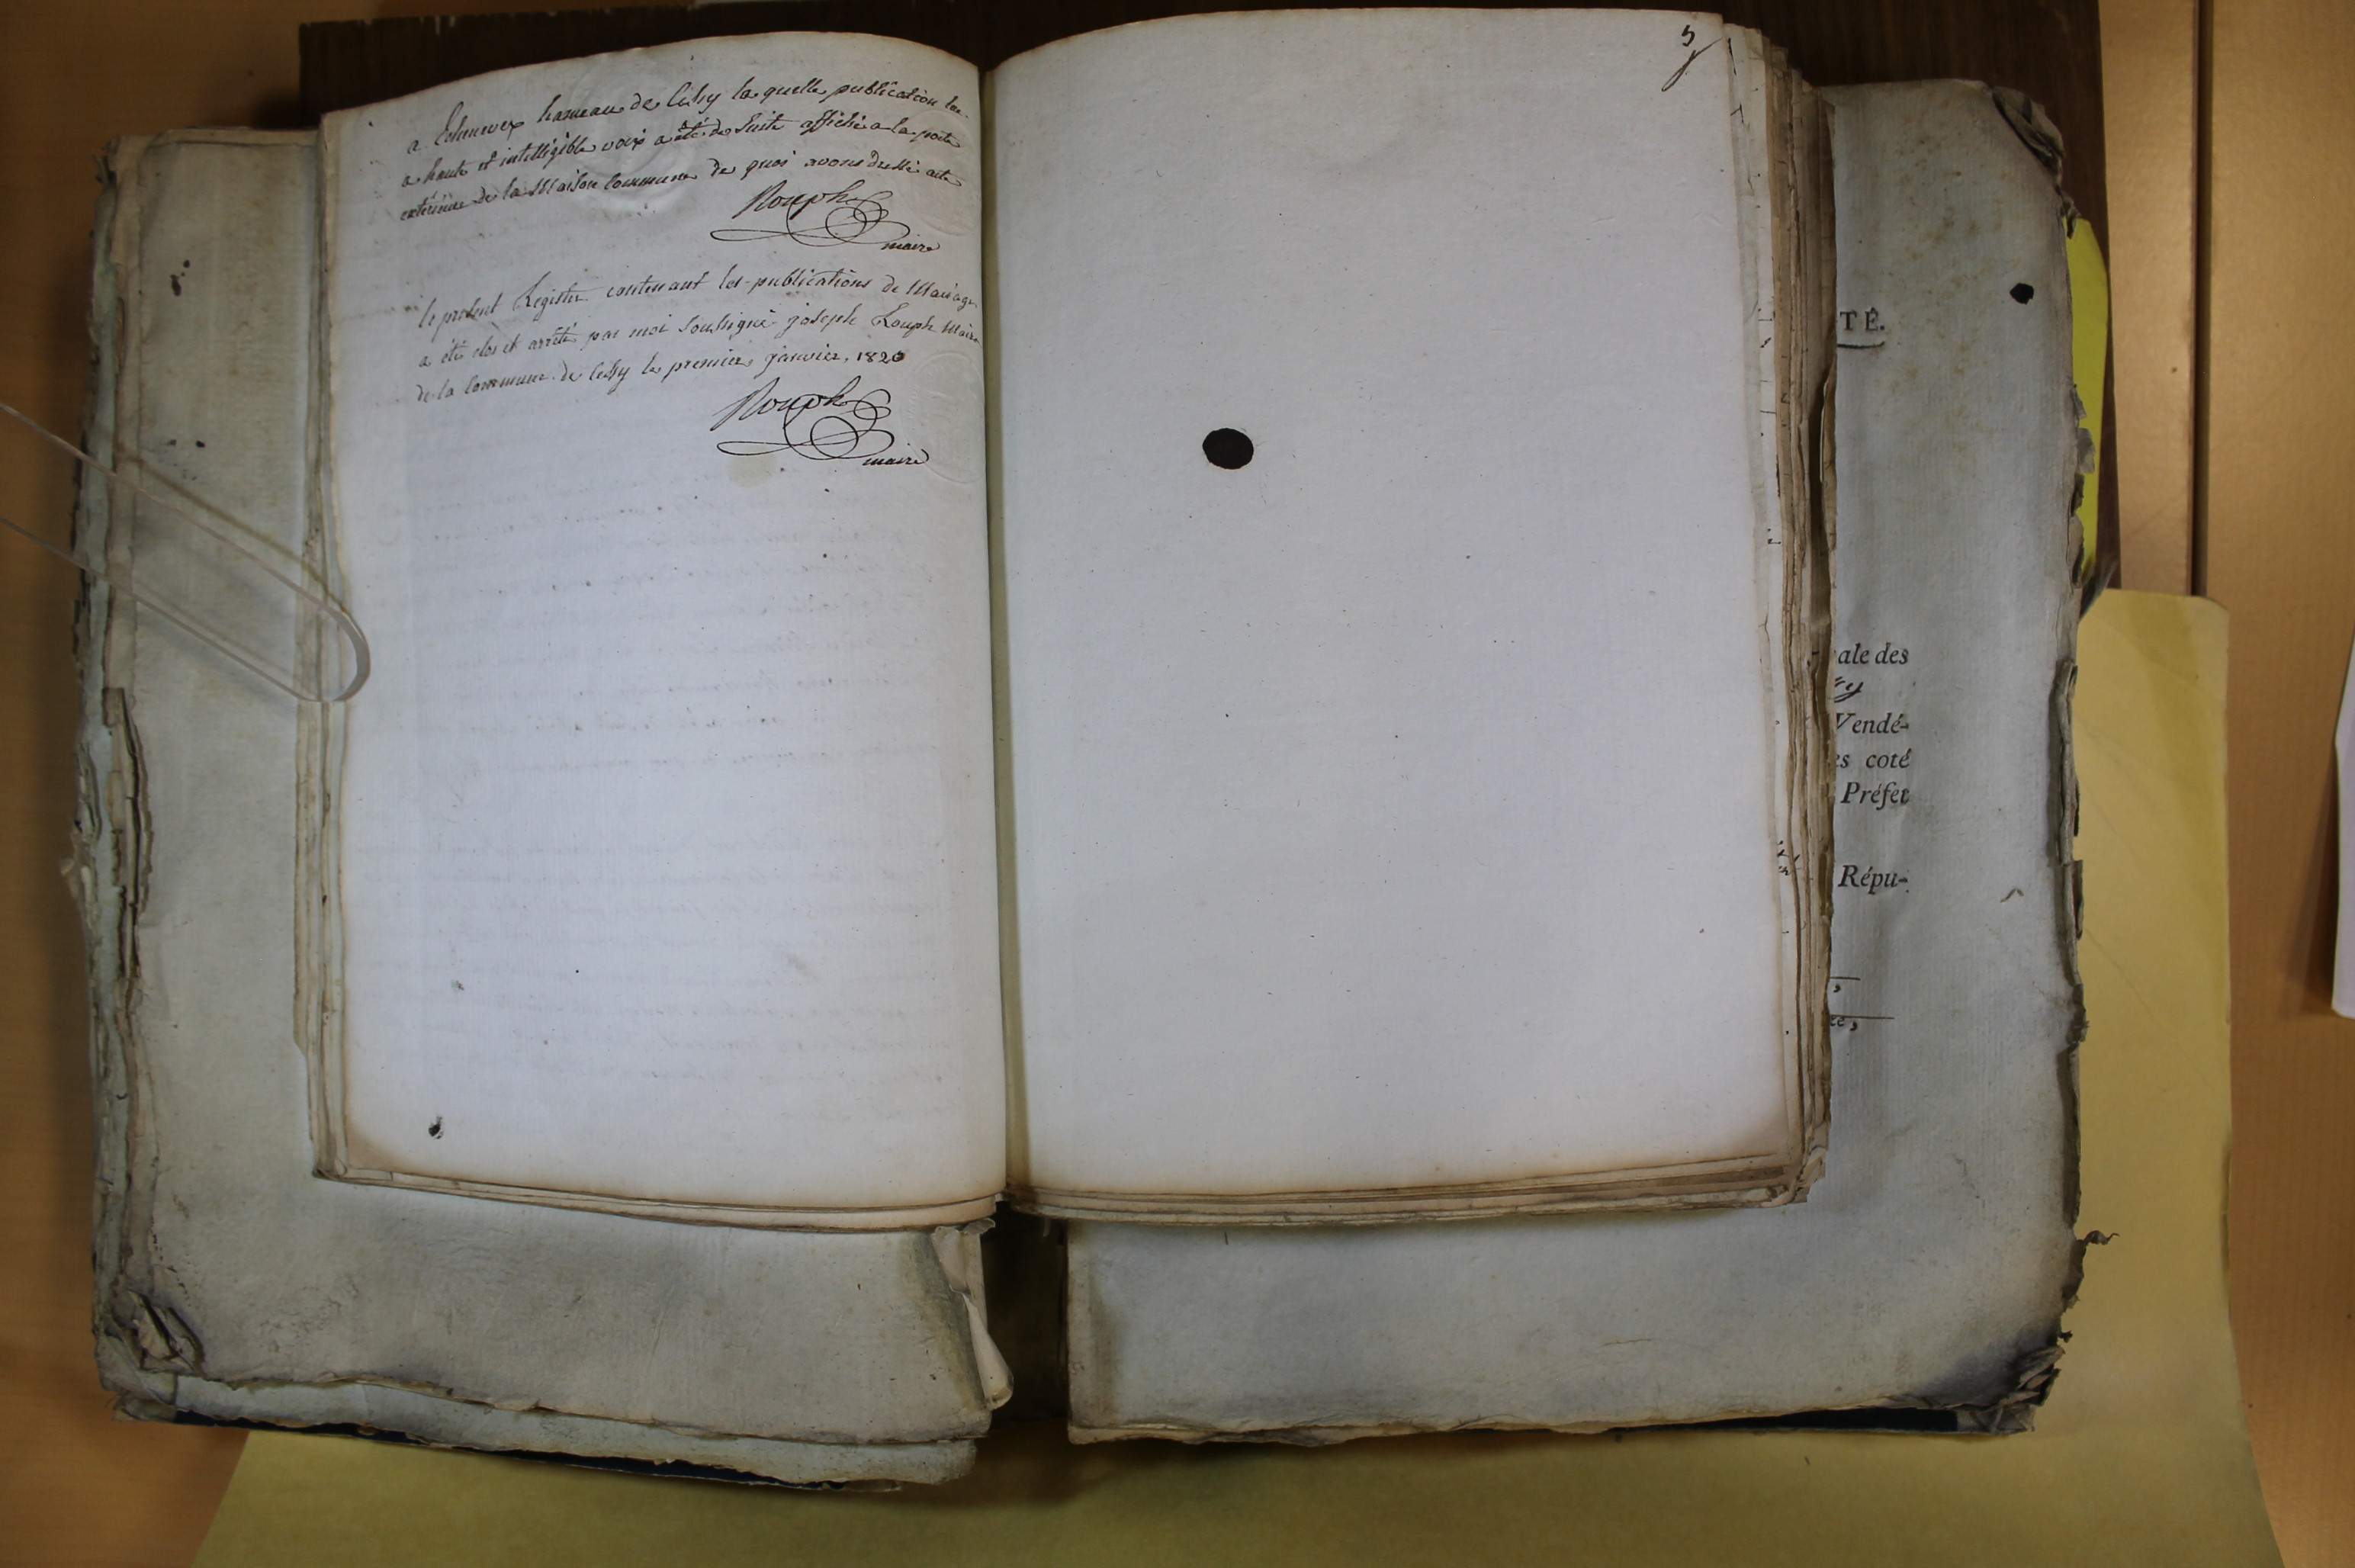 a Echenevex hameau de Cessy la quelle publication lue
a haute et intelligible voix a été de suite affiché a la porte
exterieure de la Maison Commune de quoi avons dressé acte
Rouph
maire
le présent Registre contenant les publications de Mariage
a été clos et arrêté par moi soussigné joseph Rouph Maire
de la Commune de Cessy le premier janvier 1820
Rouph
maire
5
TÉ.
ale des
Vendé-
es coté
Préfet
Répu-